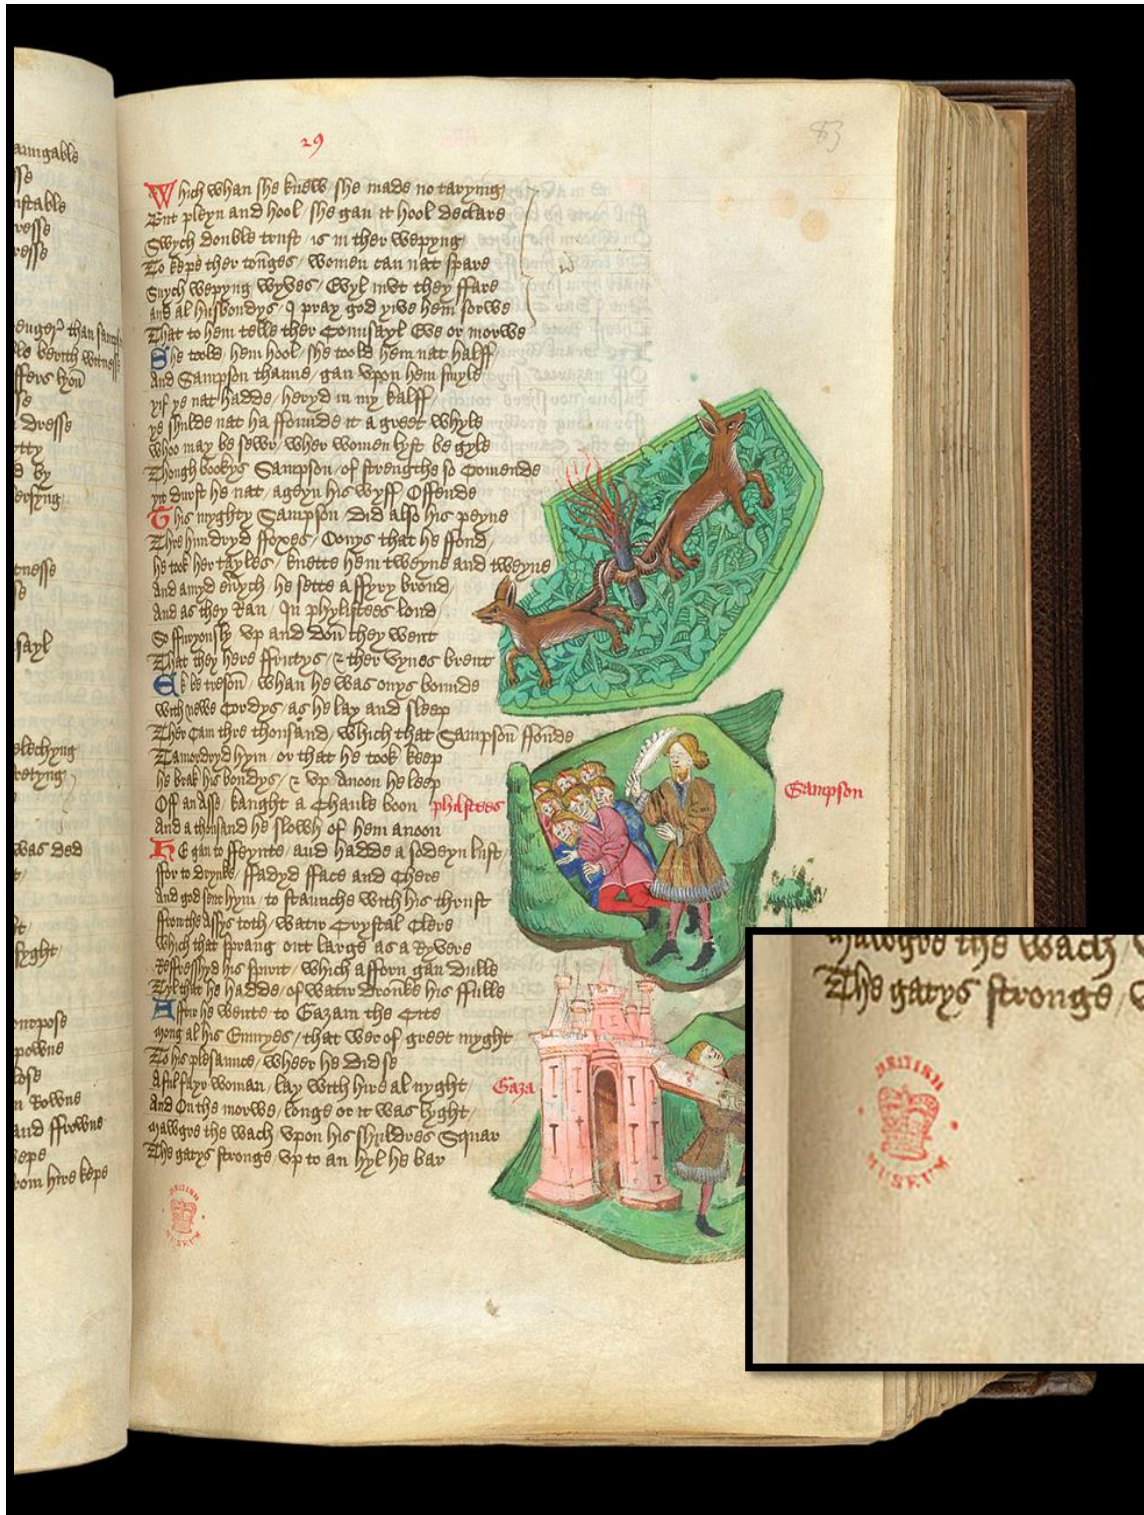 29
83
Which whan she knew she made no taryyng
But pleyn and hool / she gan it hool declare
Swych double trust / is in ther wepyng
To kepe ther tonges / women can nat spare
Suych wepyng wyves / Evyl mvt they ffare
And al husbondys / I pray god yive hem sorwe
That to hem telle ther Counsayl Eve or morwe
She toold hem hool / she toold hem nat halff
And Sampson thanne / gan vpon hem smyle
yiff ye nat hadde / heryd in my kalff
ye shulde nat ha ffounde it a greet whyle
whoo may be sewr / wher women lyst be gyle
Though bookys Sampson / of strengthe so Comende
yit durst he nat / ageyn his wyff Offende
This myghty Sampson / did also his peyne
Thre hundryd ffoxes / Oonys that he ffond
he took her tayles / knette hem tweyne and tweyne
And amyd euych / he sette a ffyry brond
And as they Ran / In phylistees lond
So ffuryously vp and don they went
That they here ffrutys / & ther vynes brent
Ek be treson / whan he was onys bounde
with newe Cordys / as he lay and sleep
Ther Cam thre thousand / which that Sampson ffonde
Tamordryd hym / or that he took keep
he brak his bondys / & vp Anoon he leep
Off an Asse / kaught a Chaule boon
And a thousand he slowh of hem anoon
philistees
Sampson
He gan to ffeynte / and hadde a sodeyn lust
ffor to drynke / ffadyd fface and Chere
And god sent hym / to staunche with his thrust
ffrom the Assys toth / watir Crystal Clere
which that sprang out large as a Ryvere
Reffresshyd his spirit / which afforn gan dulle
Tyl that he hadde / of watir dronke his ffille
Aftir he wente to Gazam the Cite
mong al his Enmyes / that wer of greet myght
To his plesaunce / wheer he did se
A ful fayr woman / lay with hire al nyght
And On the morwe / longe or it was lyght
mawgre the wach / vpon his shuldres Squar
The gatys stronge / vp to an hyl he bar
Gaza
BRITISH MUSEUM
mawgre the wach
The gatys stronge
BRITISH MUSEUM